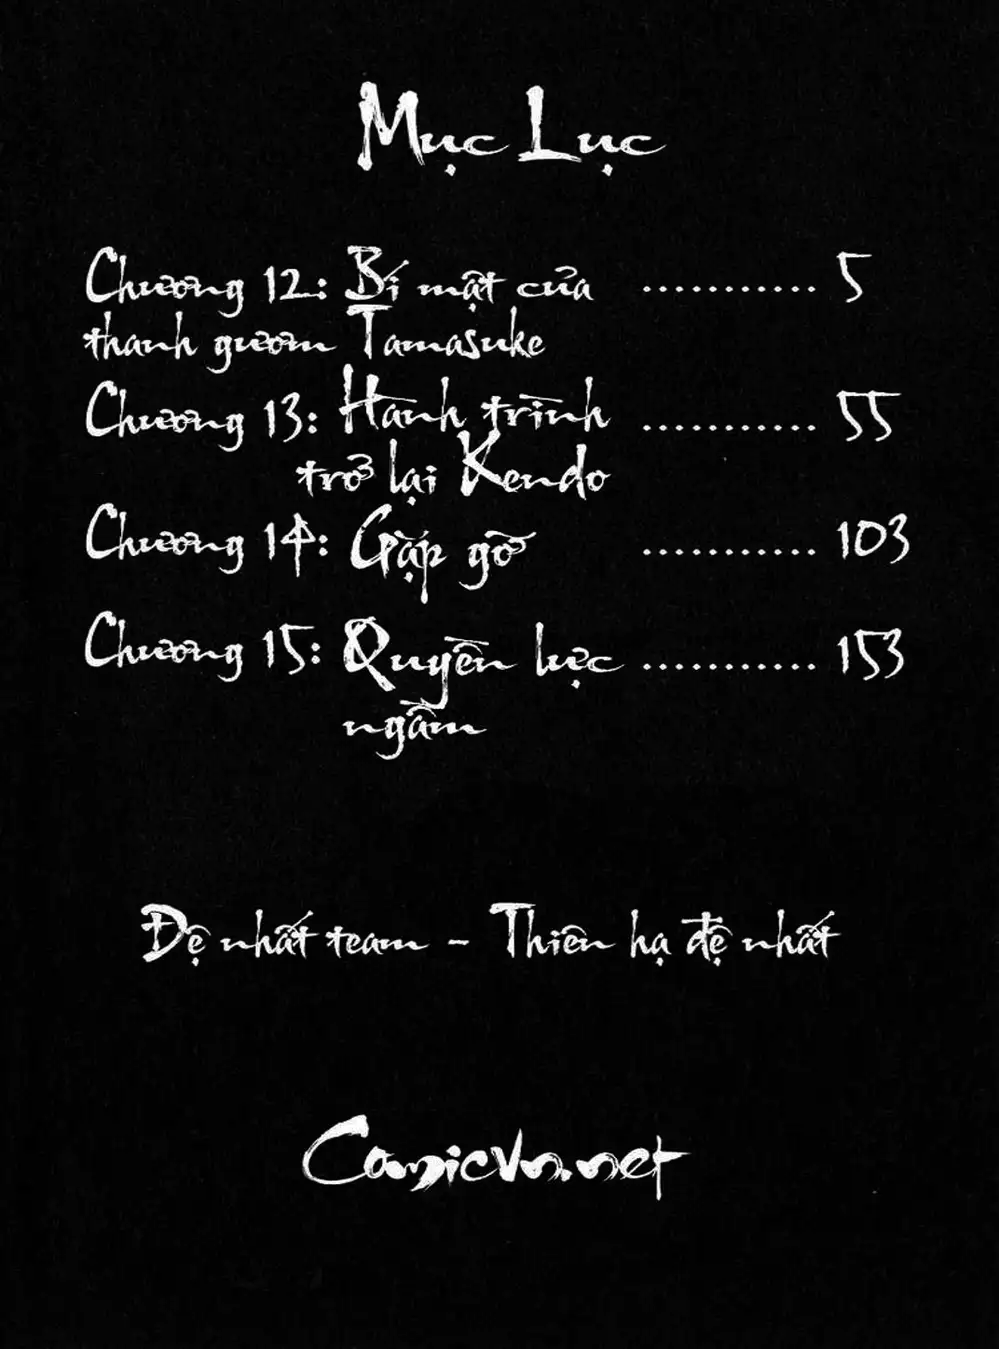 Mục Lục
Chương 12: Bí mật của ........... 5
thanh gươm Tamasuke
Chương 13: Hành trình ........... 55
trở lại Kendo
Chương 14: Gặp gỡ ........... 103
Chương 15: Quyền lực ........... 153
ngầm
Đệ nhất team - Thiên hạ đệ nhất
Comicvn.net